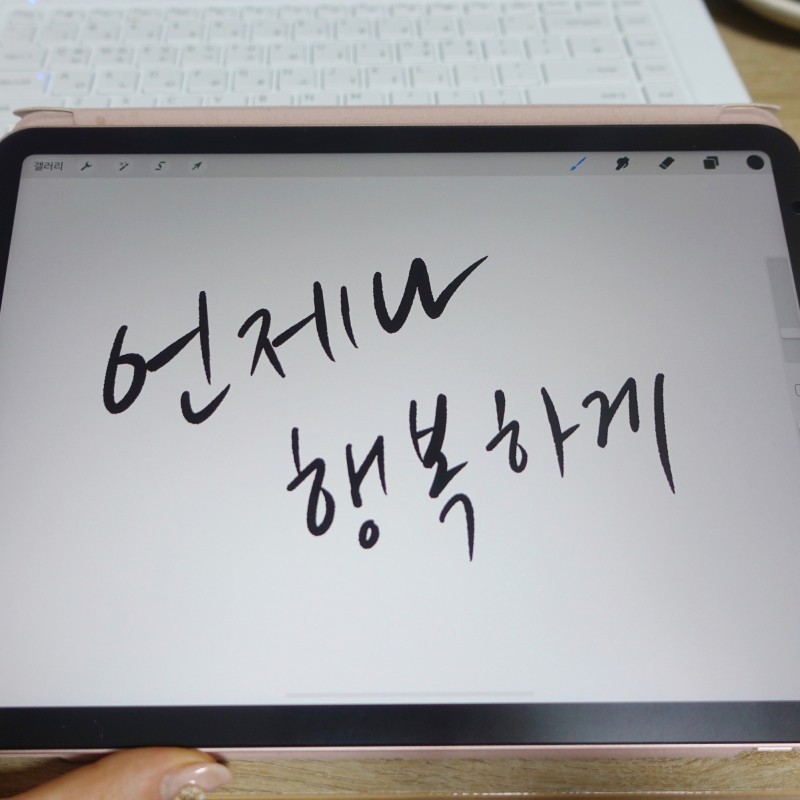 갤러리
언제나
행복하게